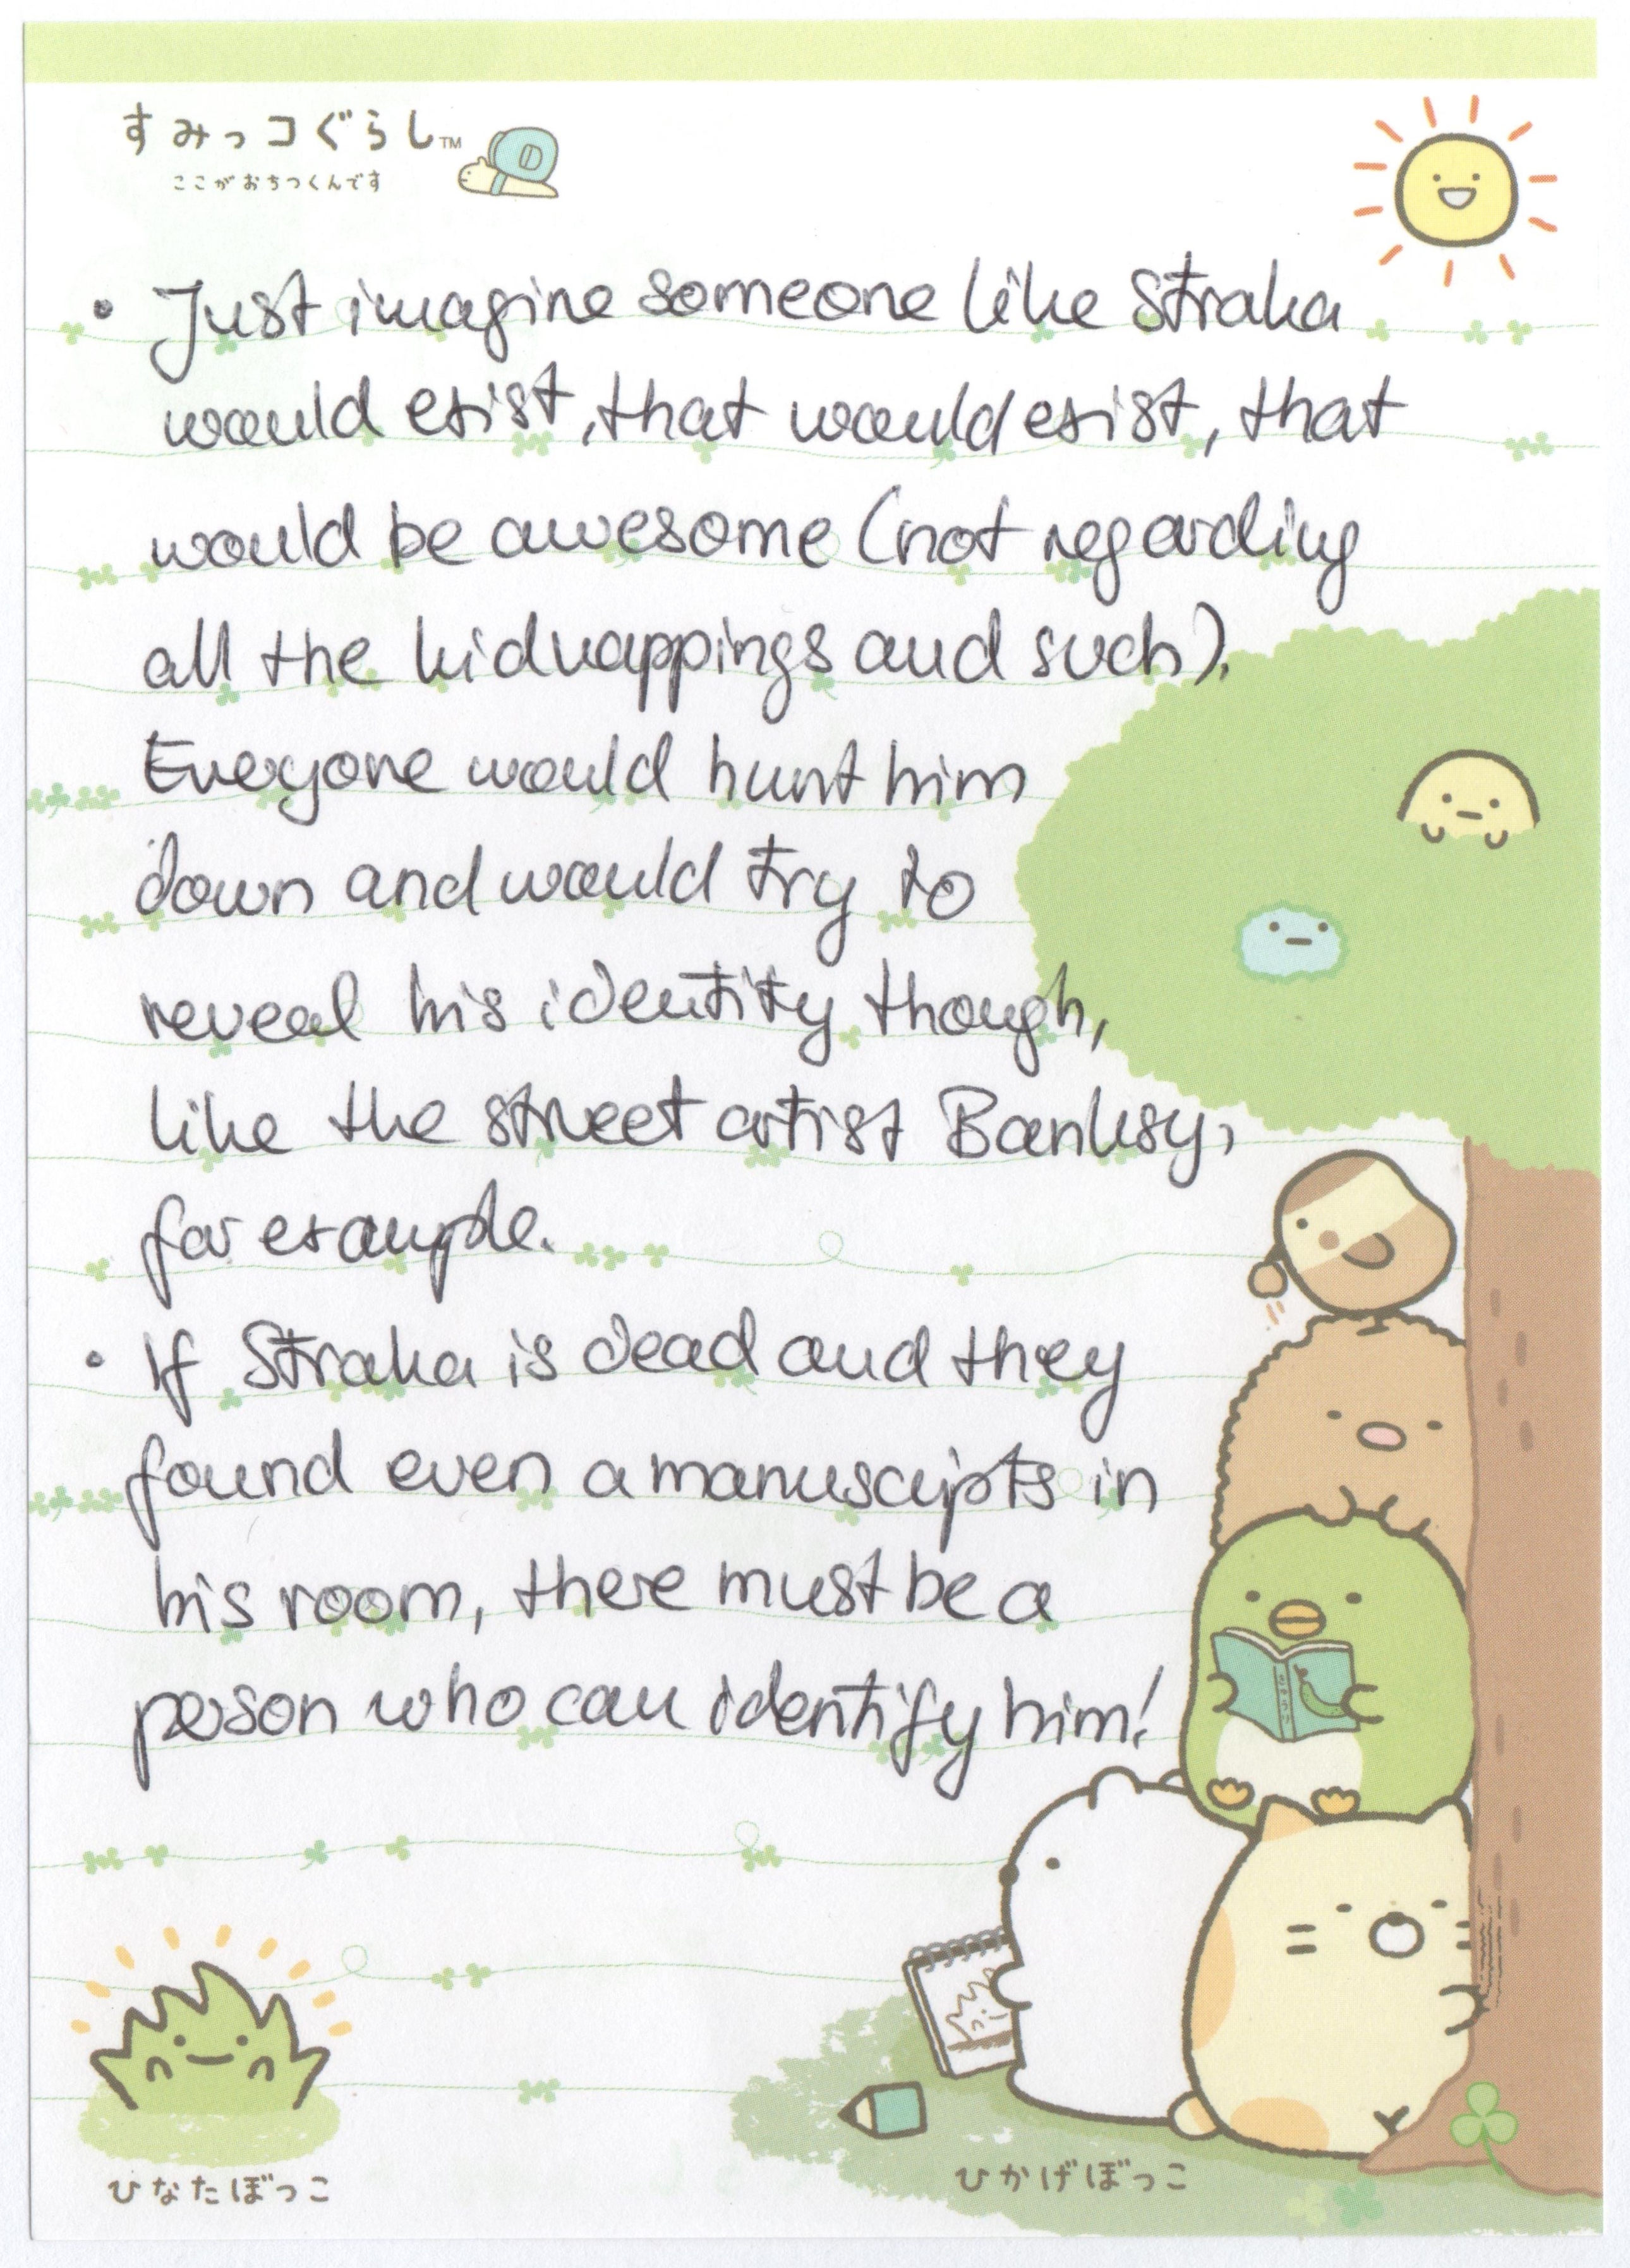 すみっコぐらし™
ここがおちつくんです
• Just imagine someone like Straka
would exist, that would exist, that
would be awesome (not regarding
all the kidnappings and such).
Everyone would hunt him
down and would try to
reveal his identity though,
like the street artist Banksy,
for example.
• If Straka is dead and they
found even a manuscripts in
his room, there must be a
person who can identify him!
ひなたぼっこ
ひかげぼっこ